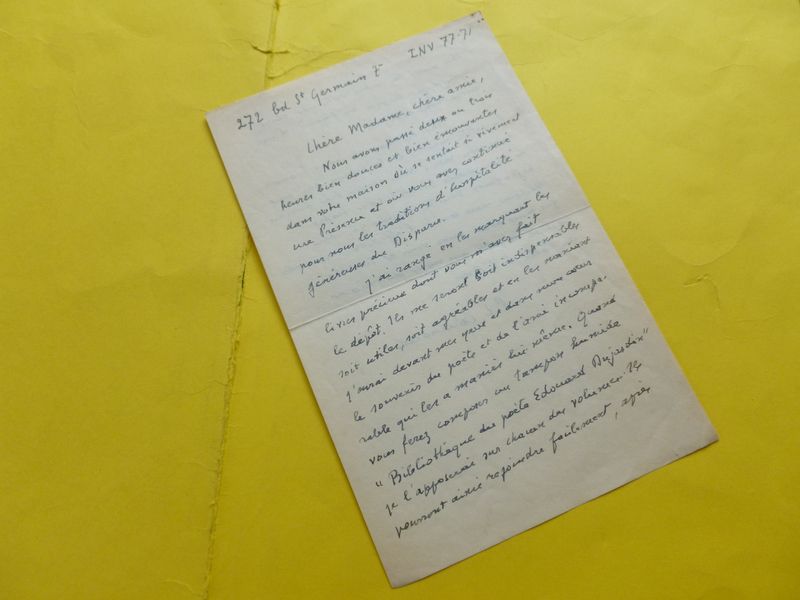 272 bd St Germain 7e INV 77.71
Chère Madame, chère amie,
Nous avons passé deux ou trois
heures bien douces et bien émouvantes
dans votre maison où se sentait si vivement
une Présence et où vous avez continué
pour nous les traditions d'hospitalité
généreuse du Disparu.
J'ai rangé en les marquant les
livres précieux dont vous m'avez fait
le dépôt. Ils me seront soit indispensables
soit utiles, soit agréables et en les maniant
j'aurai devant mes yeux et dans mon cœur
le souvenir du poète et de l'ami incompa-
rable qui les a maniés lui-même. Quand
vous ferez composer un tampon humide
"Bibliothèque du poète Edouard Dujardin"
je l'apposerai sur chacun des volumes. Ils
pourront ainsi rejoindre facilement, après